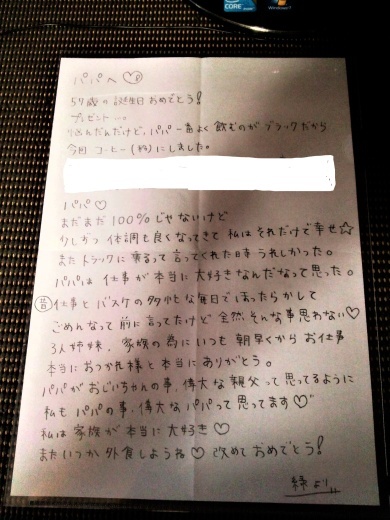 CORE
Windows 7
パパへ♡
57歳の誕生日おめでとう!
プレゼント…。
悩んだんだけど、パパ一番よく飲むのがブラックだから
今回 コーヒー(粉)にしました。
パパ♡
まだまだ100%じゃないけど
少しずつ 体調も良くなってきて 私はそれだけで幸せ☆
またトラックに乗るって言ってくれた日キうれしかった。
パパは仕事が本当に大好きなんだなって思った。
昔 仕事とバスケの多忙な毎日でほったらかして
ごめんなって前に言ってたけど全然そんな事思わない♡
3人姉妹、家族の為にいつも朝早くからお仕事
本当におつかれ様と本当にありがとう。
パパがおじいちゃんの事、偉大な親父って思ってるように
私もパパの事、偉大なパパって思ってます♡
私は家族が本当に大好き♡
またいつか外食しようね♡ 改めておめでとう!
緑より